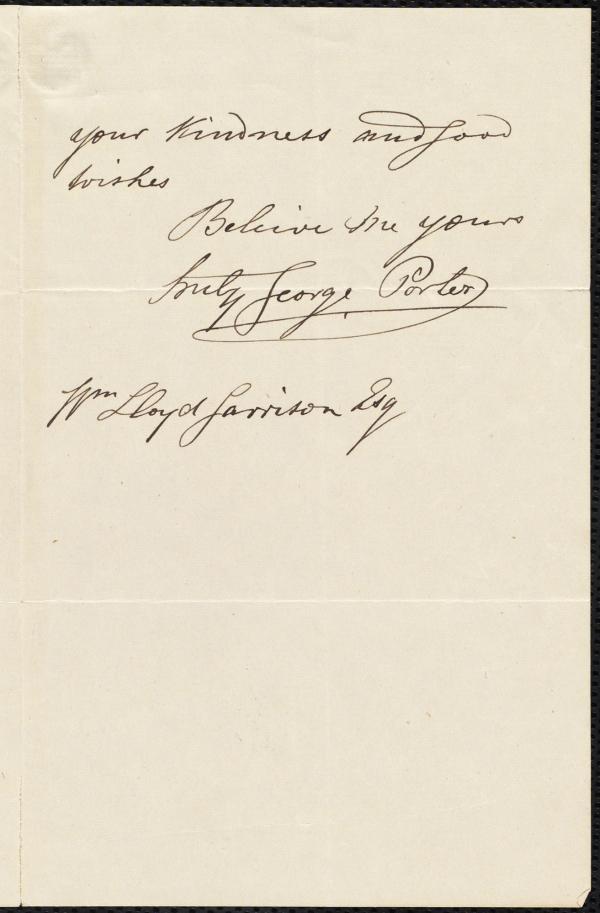 your kindness and good
wishes
Believe me yours
truly George Porter
Wm Lloyd Garrison Esq